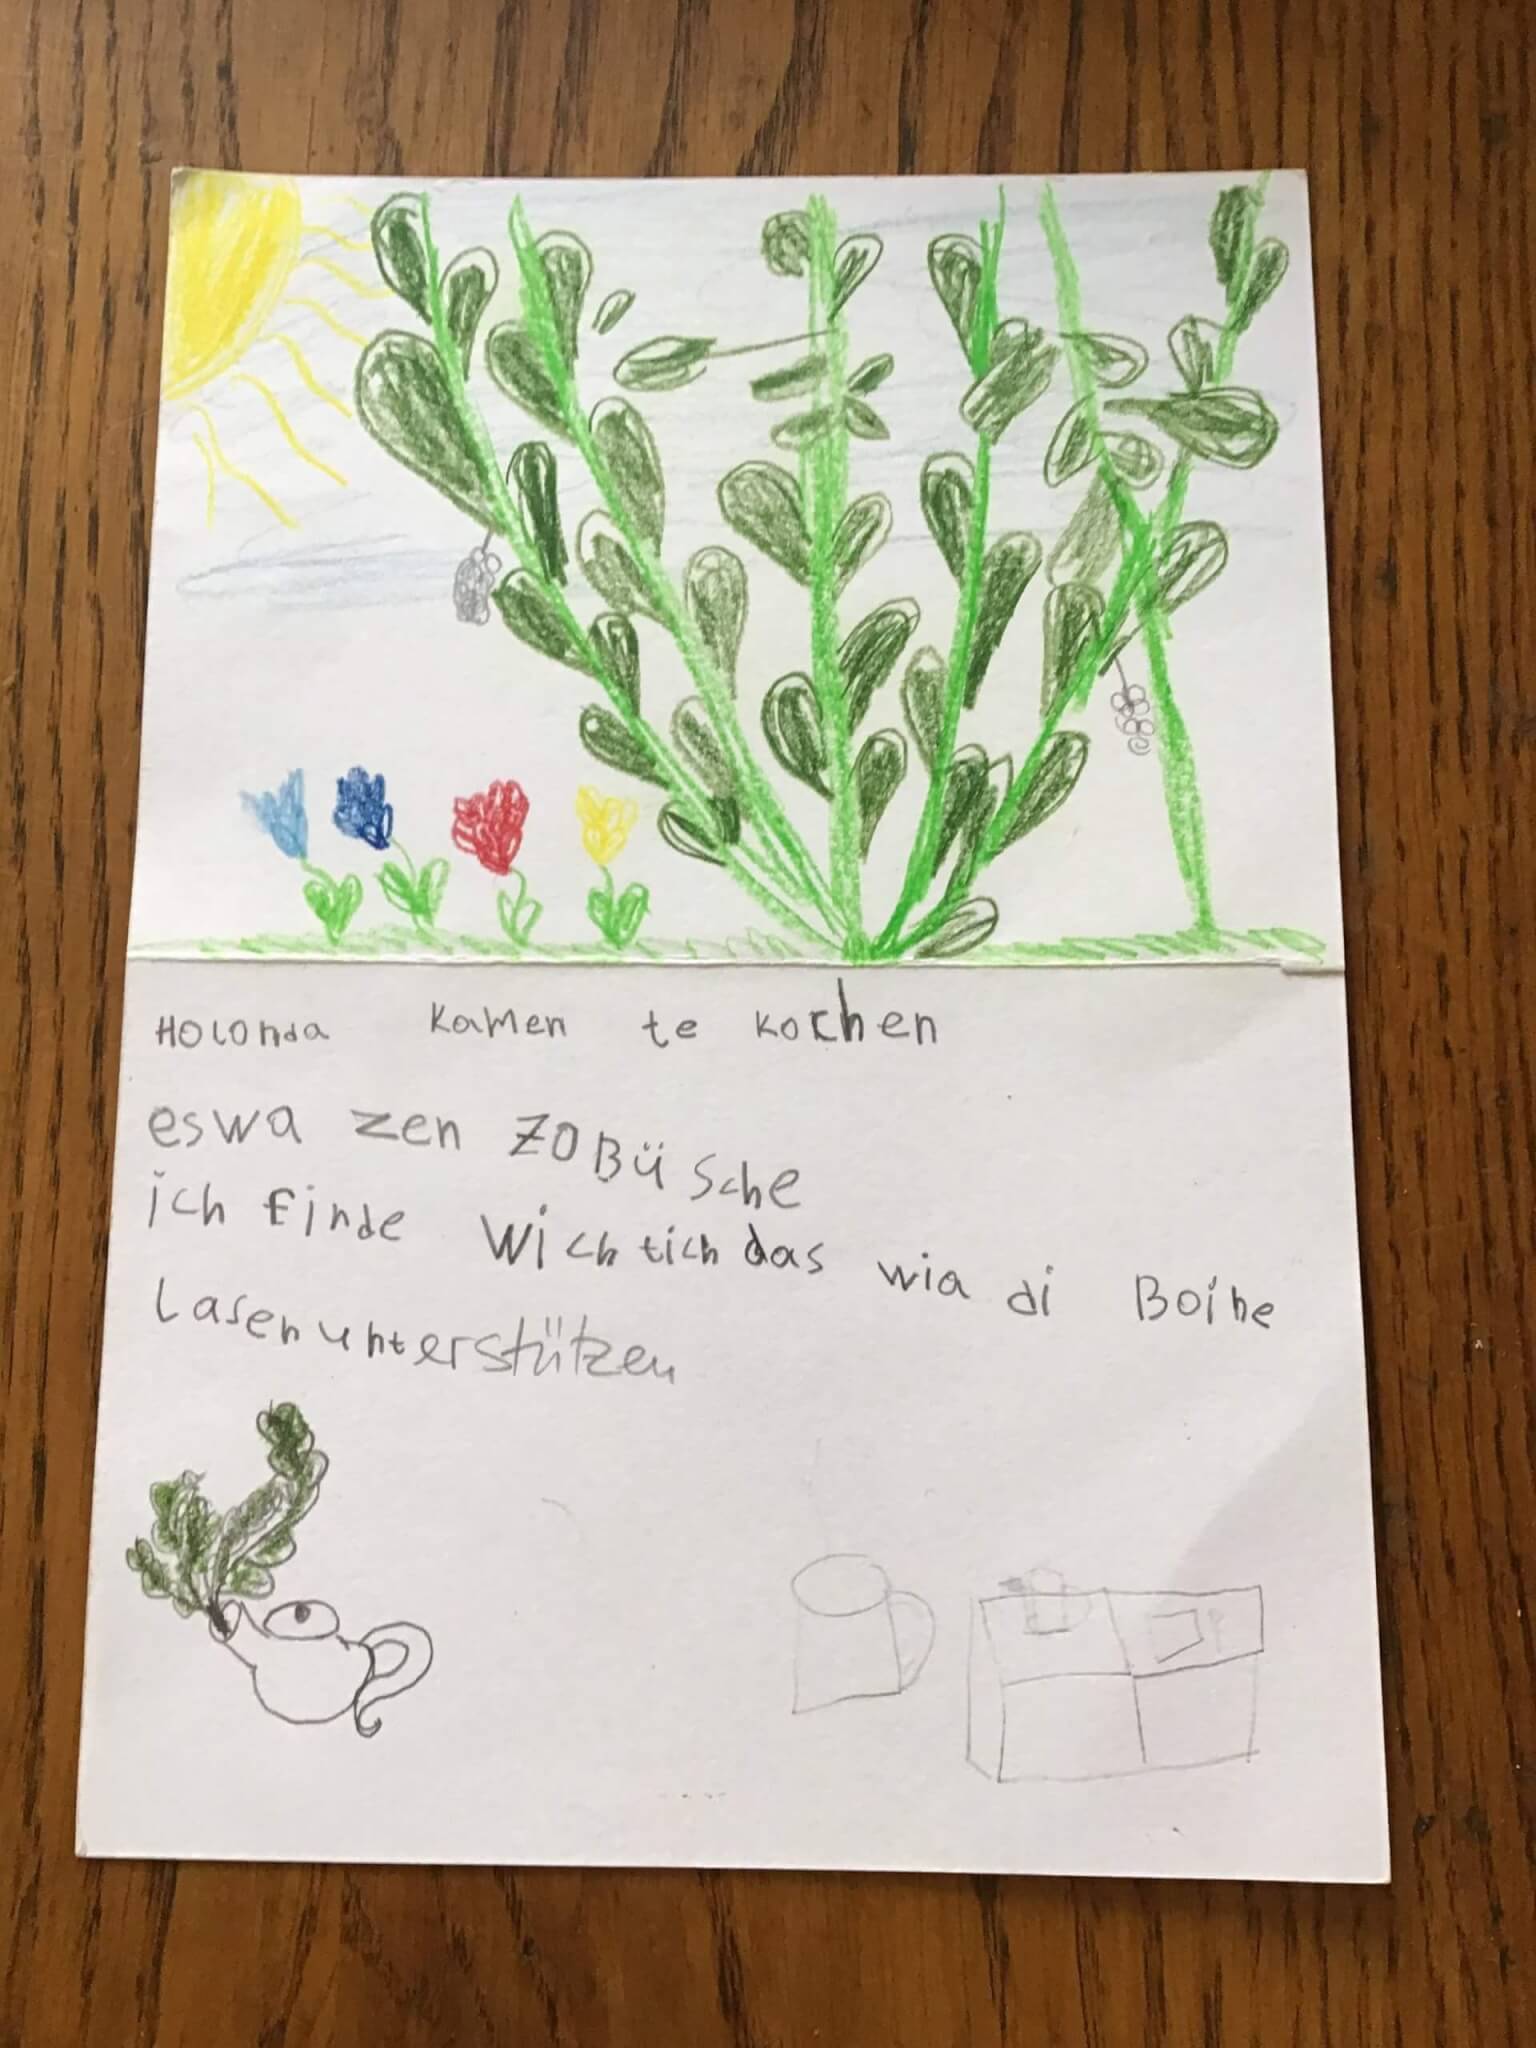 Holonda kamen te kochen
eswa zen zo Büsche
ich finde wichtich das wia di Boihe
Lasen unterstützen